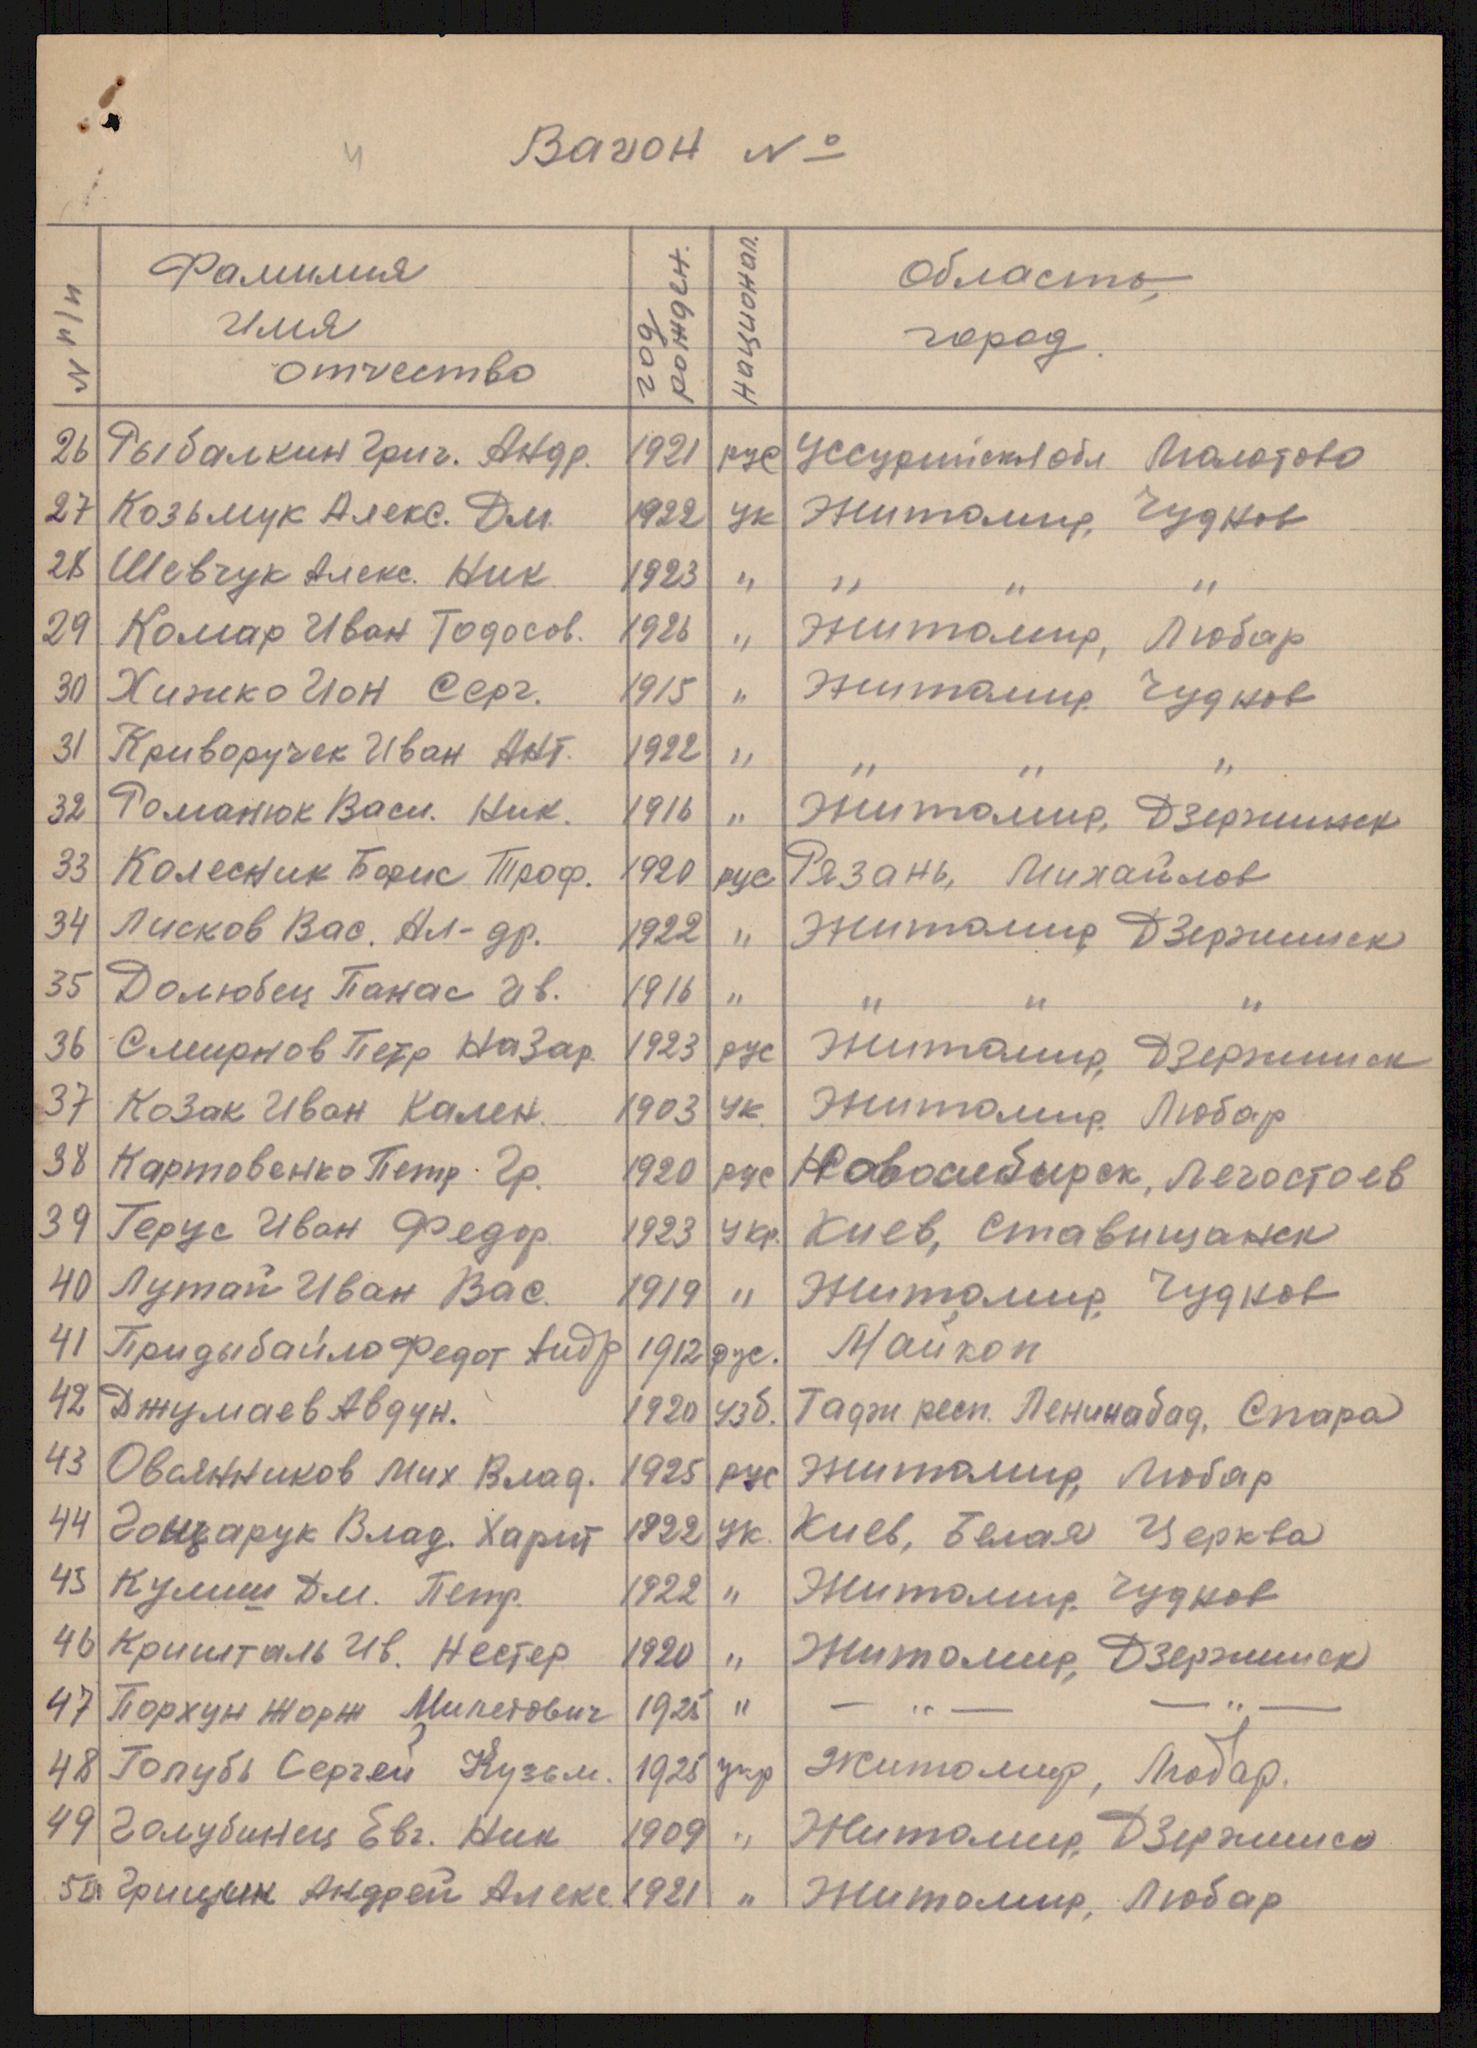 Вагон №
N п/п
Фамилия
имя
отчество
год рожден.
Национал.
Область,
город.
26 Рыбалкин Григ. Андр. 1921 рус Уссурийск обл Молотово
27 Козьмук Алекс. Дм. 1922 Ук Житомир, Чуднов
28 Шевчук Алекс. Ник 1923 " " " "
29 Комар Иван Тодосов. 1926 " Житомир, Любар
30 Хижко Ион Серг. 1915 " Житомир. Чуднов
31 Криворучек Иван Ант. 1922 " " " "
32 Романюк Васи. Ник. 1916 " Житомир, Дзержинск
33 Колесник Борис Троф. 1920 рус Рязань, Михайлов
34 Лисков Вас. Ал-др. 1922 " Житомир Дзержинск
35 Долюбец Панас Ив. 1916 " " " "
36 Смирнов Петр Назар. 1923 рус Житомир, Дзержинск
37 Козак Иван Кален. 1903 Ук. Житомир. Любар
38 Картовенко Петр Гр. 1920 рус Новосибирск, Легостоев
39 Герус Иван Федор 1923 Укр. Киев, Ставищанск
40 Лутай Иван Вас. 1919 " Житомир, Чуднов
41 Придыбайло Федот Андр 1912 рус. Майкоп
42 Джумаев Авдун. 1920 узб. Тадж респ. Ленинабад, Спара
43 Овсянников Мих Влад. 1925 рус Житомир, Любар
44 Гончарук Влад. Харит 1922 Ук. Киев, Белая Церква
45 Кулиш Дм. Петр. 1922 " Житомир. Чуднов
46 Кришталь Ив. Нестер 1920 " Житомир, Дзержинск
47 Порхун Жорж Милетович 1925 " — " — — " —
48 Голубь Сергей Кузьм. 1925 укр Житомир, Любар.
49 Голубинец Евг. Ник 1909 " Житомир, Дзержинск
50 Грицык Андрей Алекс. 1921 " Житомир, Любар